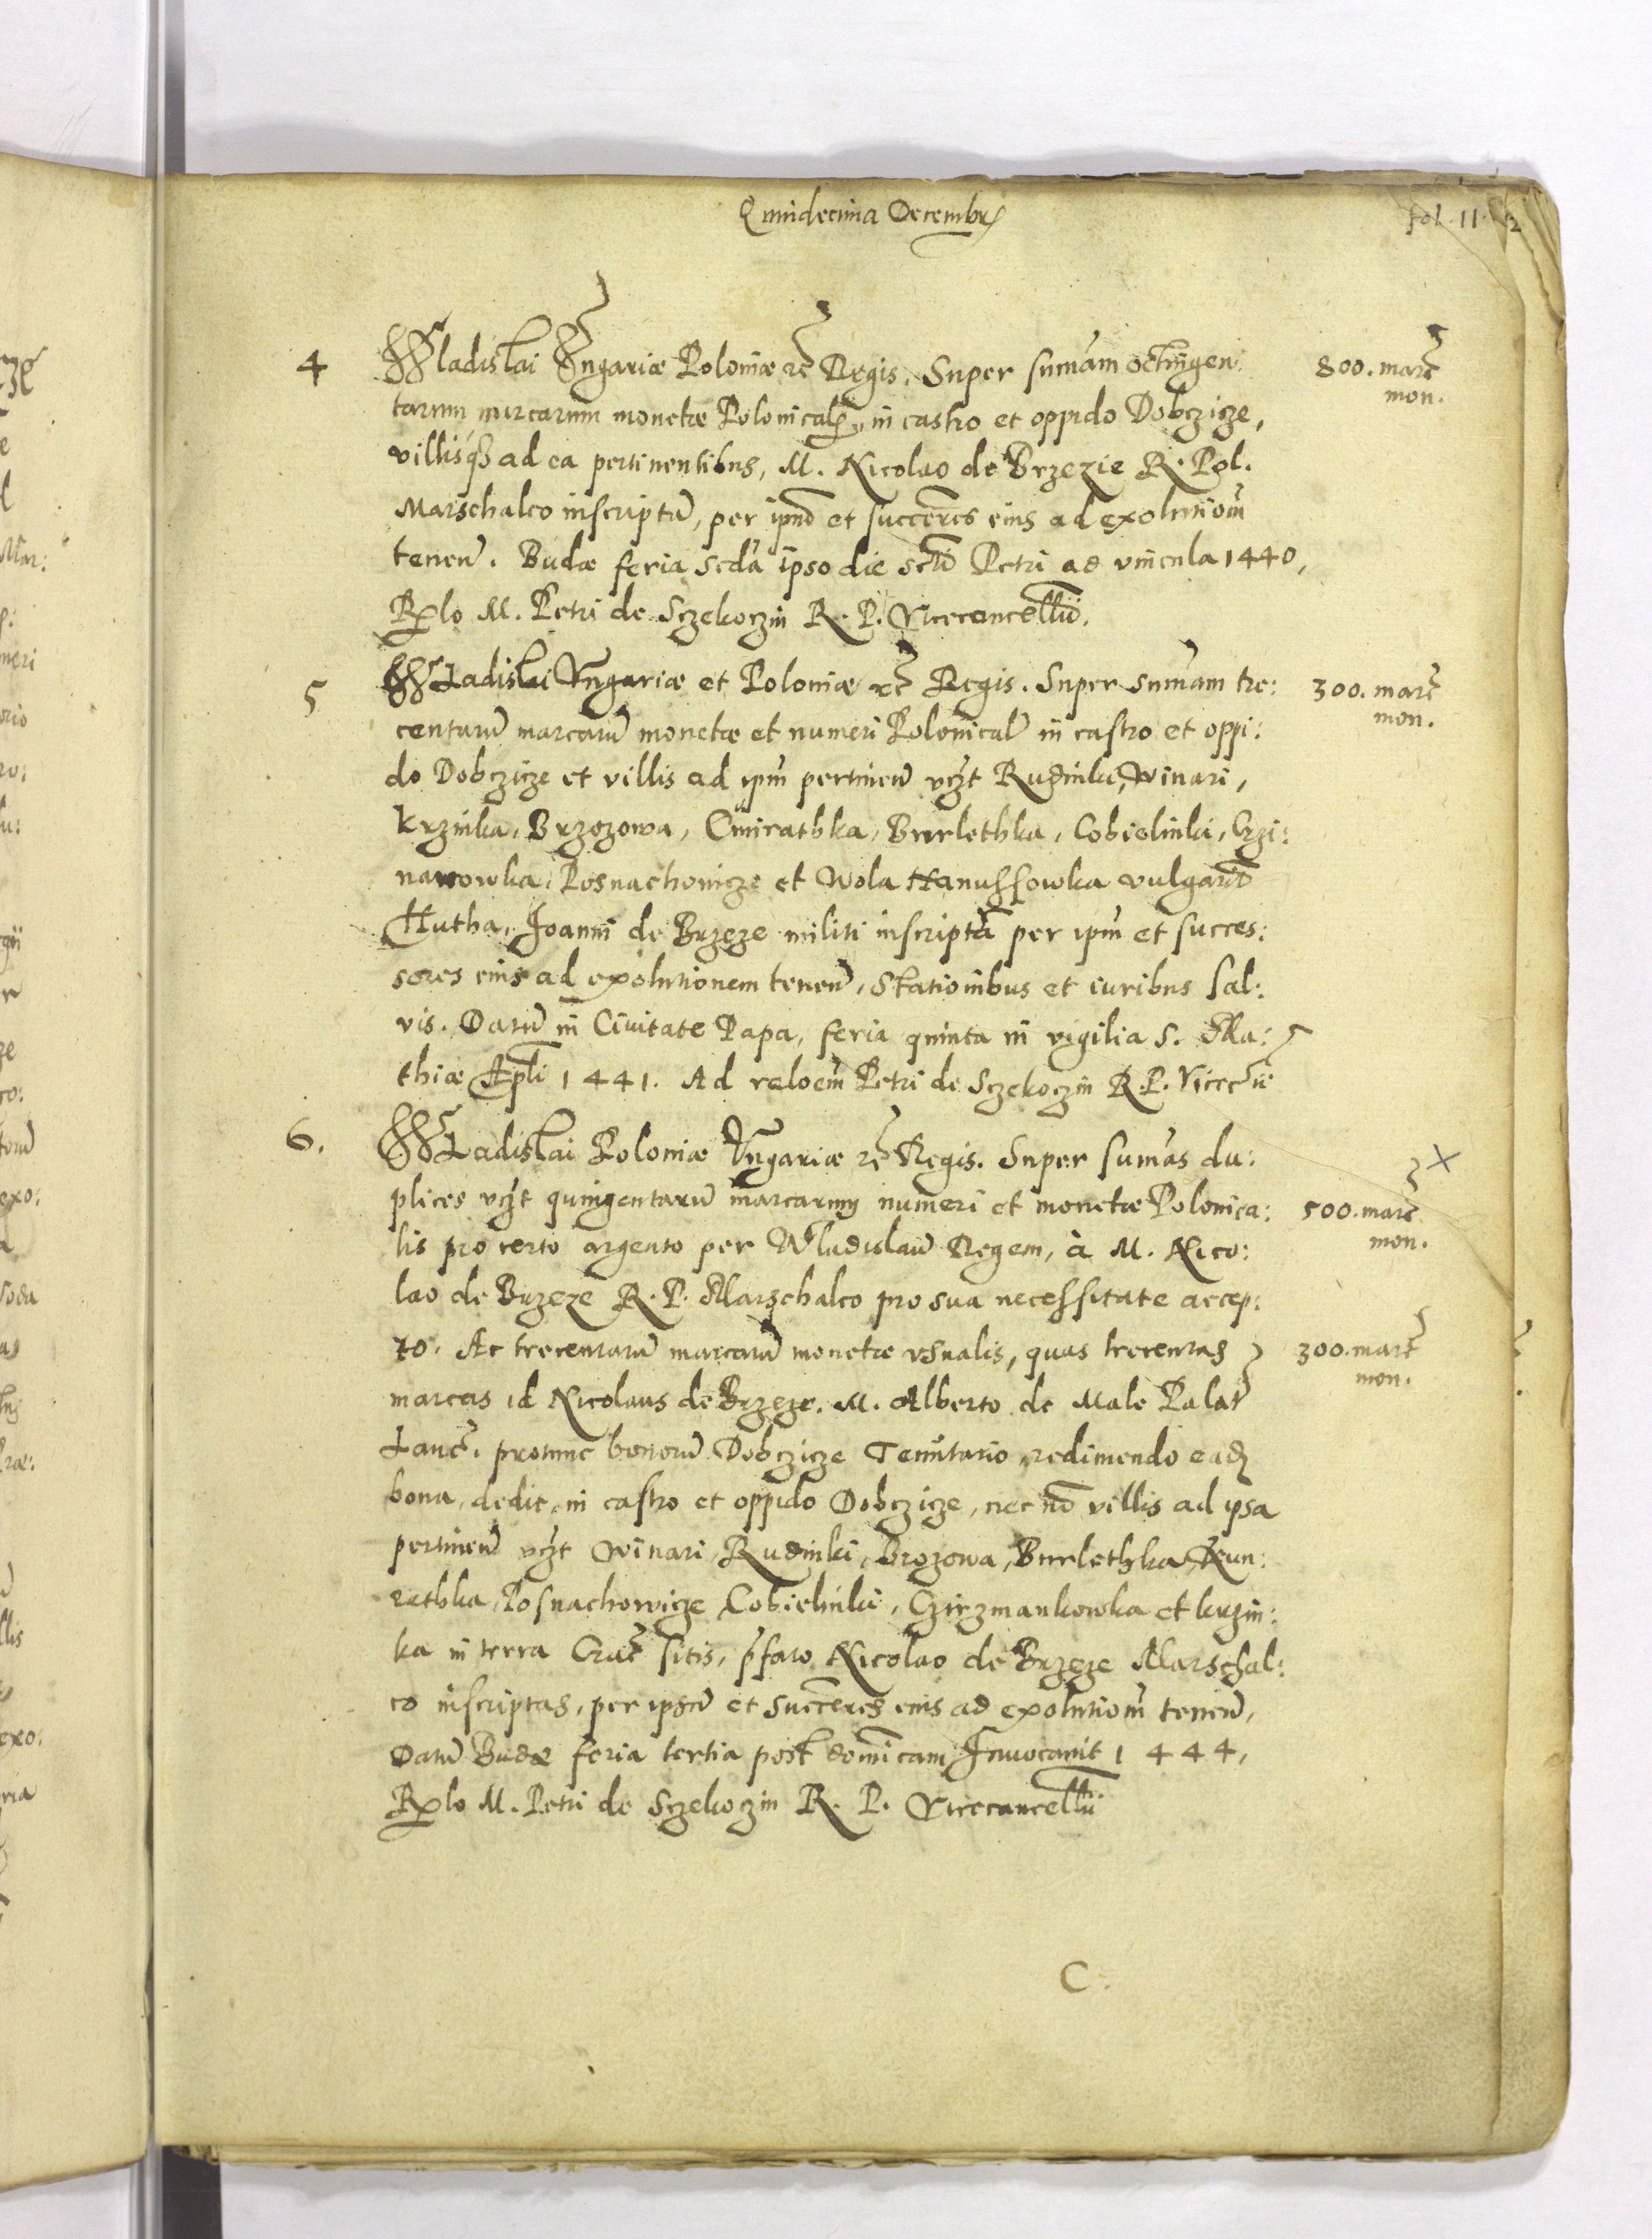 Quindecima Decembris
fol. 11. 12
4 Wladislai Ungariæ Poloniæ etc Regis. Super sumam octingen
800. marc
tarum marcarum monetæ Polonical, in castro et oppido Dobczicze,
mon.
villisq ad ea pertinentibus, M. Nicolao de Brzezie R. Pol.
Marschalco inscriptū, per ipm et succeres eius ad exolutiom
tenen. Budæ feria scda ipso die scti Petri ad vincula 1440,
Rlo M. Petri de Sczekoczin R. P. Vicecancellii.
5 Wladislai Ungariæ et Poloniæ etc Regis. Super sumam tre:
300. marc
centarū marcarū monetæ et numeri Polonical in castro et oppi:
mon.
do Dobczicze et villis ad ipm pertinen vczt Rudnki, Winari,
Krzinka, Brzozowa, Burlethka, Cobielinki, Czi:
nanowka, Posnachowicze et Wola Hanussowka vulgarr
Hutha, Joanni de Brzeze militi inscriptā per ipm et succes:
sores eius ad exolutionem tenen, Stationibus et iuribus sal:
vis. Datū in Civitate Papa, feria quinta in vigilia S. Ma:
thiæ Apli 1441. Ad raloem Petri de Sczekoczin R. P. Vicec
6. Wladislai Poloniæ Ungariæ etc Regis. Super sumas du:
X
plices vczt quingentarū marcarum numeri et monetæ Polonica:
500. marc
lis pro certo argento per Wladislaū Regem, à M. Nico:
mon.
lao de Brzeze R. P. Marschalco pro sua necessitate accep:
to. Ac trecentarū marcarū monetæ vsualis, quas trecentas
300. marc
marcas id Nicolaus de Brzeze. M. Alberto de Male Palat
mon.
Lanc. protunc bonorū Dobczicze Tenutario, redimendo ead
bona, dedit, in castro et oppido Dobczicze, nec nō villis ad ipsa
pertinen vczt Winari, Rudinki, Brozowa, Burlethka, Kun:
rathka, Posnachowicze, Cobielinki, Czirzmankowka et krzin:
ka in terra Crac sitis, pfato Nicolao de Brzeze Marschal:
co inscriptas, per ipsū et succeres eius ad exolutiom tenen,
Datū Budæ feria tertia post domicam Inuocauit 1444,
Rlo M. Petri de Sczekoczin R. P. Vicecancellii
C.